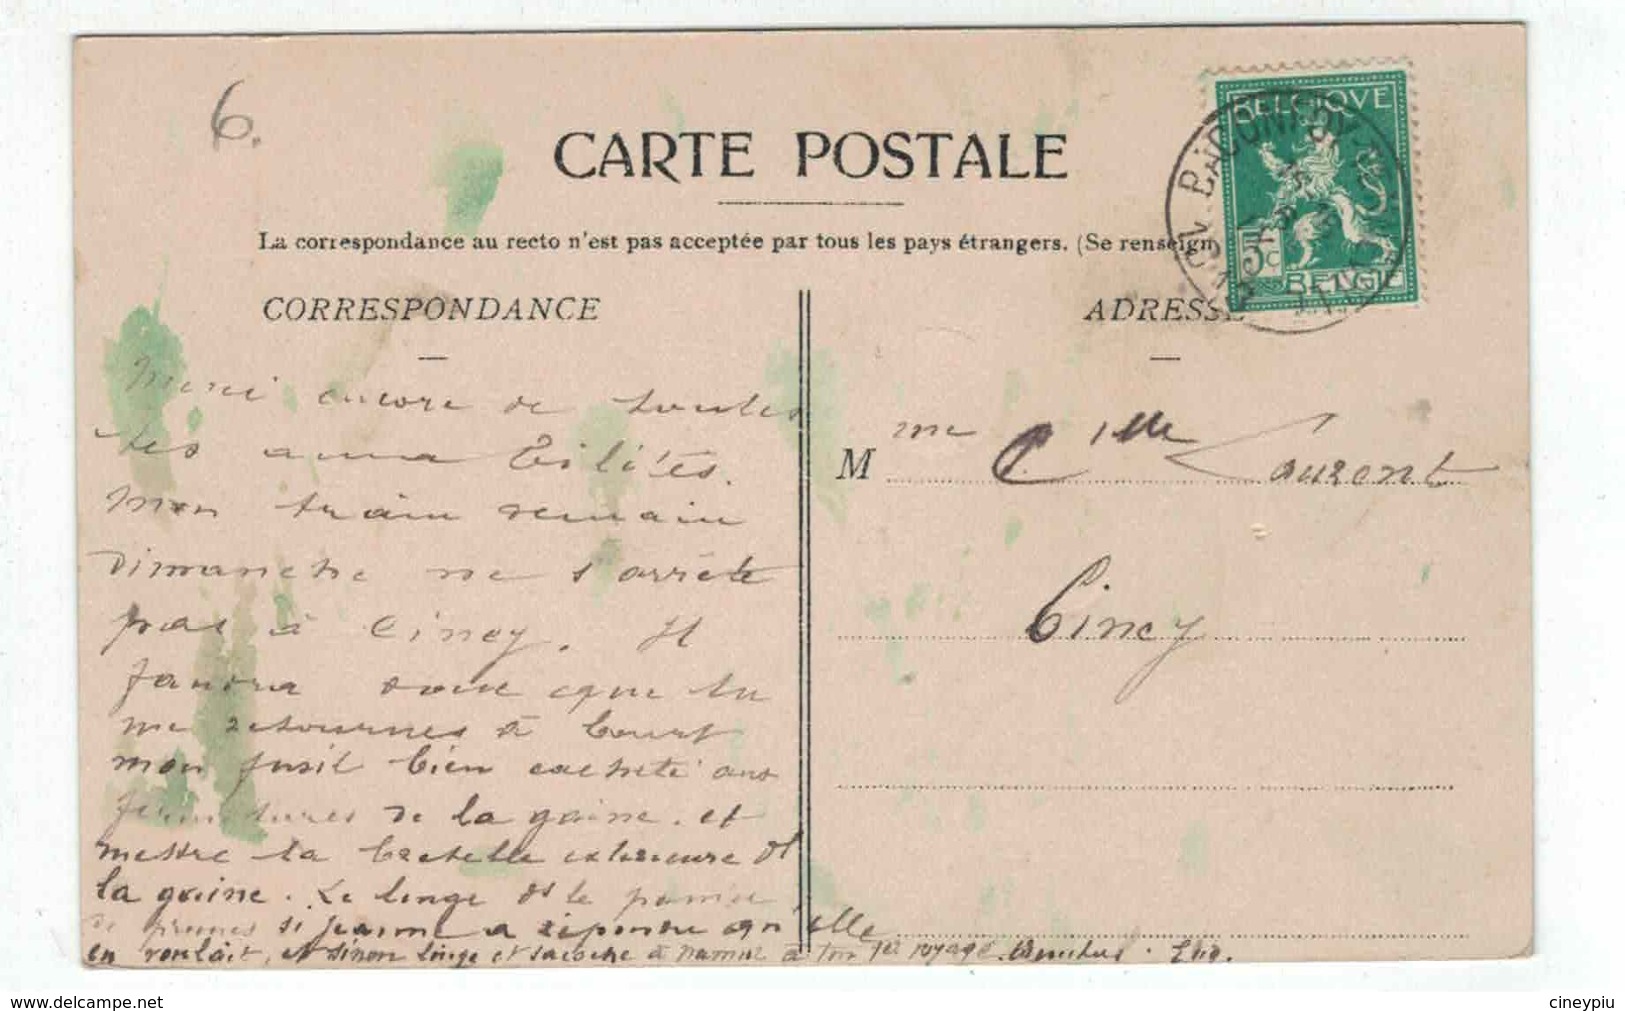 6.
CARTE POSTALE
La correspondance au recto n'est pas acceptée par tous les pays étrangers. (Se renseign
BELGIQUE
5c
BELGIË
CORRESPONDANCE
ADRESSE
Merci encore de toutes
tes amabilités.
Mon train demain
Dimanche ne s'arrête
pas à Ciney. Il
faudra donc que tu
me retournes à Court
mon fusil bien cacheté aux
fermetures de la gaine. et
mettre la bretelle extérieure de
la gaine. Le linge et le panier
de prunes si Jeanne a répondu qu'elle
en voulait, et sinon linge et sacoche à Namur à ton 1er voyage.
M me C Laurent
Ciney
cineypiu